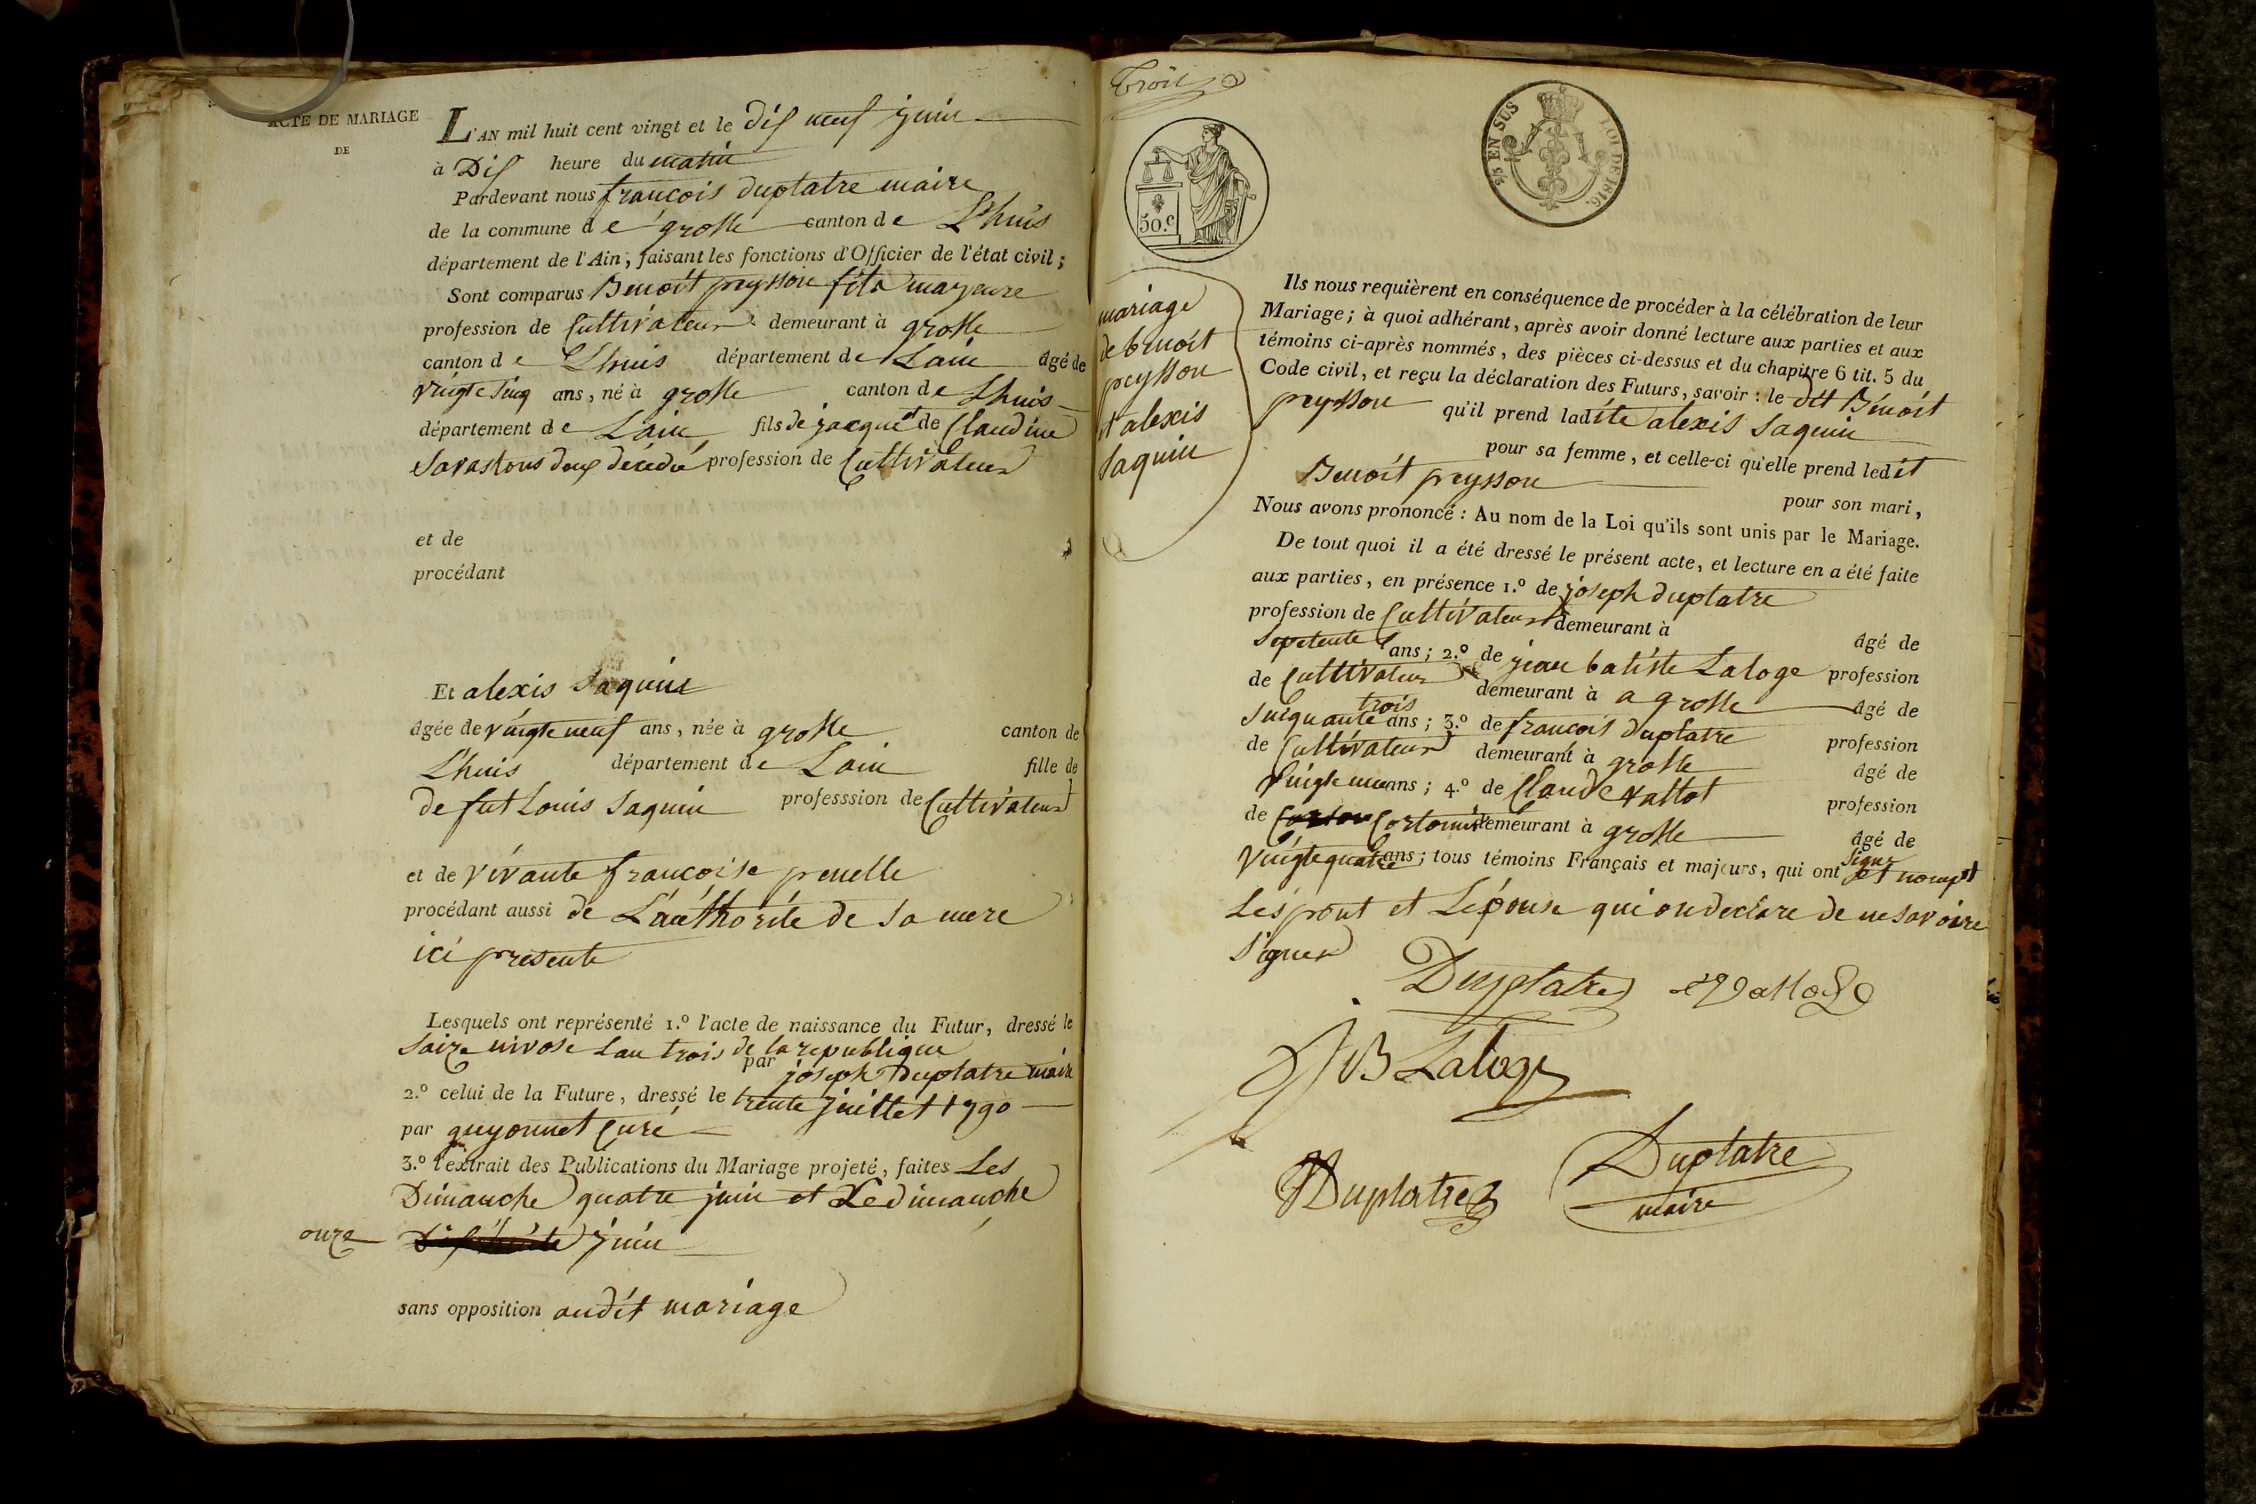 ACTE DE MARIAGE
DE
L'AN mil huit cent vingt et le dis neuf juin
à Dis heure du matin
Pardevant nous francois duplatre maire
de la commune de groslle canton de Lhuis
département de l'Ain, faisant les fonctions d'Officier de l'état civil;
Sont comparus Benoit peysson fils mayeure
profession de Cultivateur demeurant à groslle
canton de Lhuis département de Lain âgé de
vingt cinq ans, né à groslle canton de Lhuis
département de Lain fils de jacque et de Claudine
Savas tous deux décédé profession de Cultivateur
et de
procédant
Et alexis Saquin
âgée de vingt neuf ans, née à groslle canton de
Lhuis département de Lain fille de
de fut Louis Saquin professsion de Cultivateur
et de vivante francoise penelle
procédant aussi de L'authorité de sa mere
ici presente
Lesquels ont représenté 1.º l'acte de naissance du Futur, dressé le
saize nivose Lan trois de la republique
par joseph Duplatre maire
2.º celui de la Future, dressé le trente juillet 1790
par guyonnet Curé
3.º l'extrait des Publications du Mariage projeté, faites Les
Dimanche quatre juin et Le dimanche
onze juin
sans opposition audit mariage
Trois
50.c
3/5 EN SUS LOI DE 1816.
mariage
de benoit
peysson
et alexis
Saquin
Ils nous requièrent en conséquence de procéder à la célébration de leur
Mariage; à quoi adhérant, après avoir donné lecture aux parties et aux
témoins ci-après nommés, des pièces ci-dessus et du chapitre 6 tit. 5 du
Code civil, et reçu la déclaration des Futurs, savoir: le dit Bénoit
peysson qu'il prend ladite alexis Saquin
pour sa femme, et celle-ci qu'elle prend ledit
Benoit peysson pour son mari,
Nous avons prononcé: Au nom de la Loi qu'ils sont unis par le Mariage.
De tout quoi il a été dressé le présent acte, et lecture en a été faite
aux parties, en présence 1.º de joseph duplatre
profession de Cultivateur demeurant à âgé de
septente ans; 2.º de jean batiste Laloge profession
de Cultivateur demeurant à a groslle âgé de
sinquante trois ans; 3.º de francois duplatre profession
de Cultivateur demeurant à groslle âgé de
vingt ans; 4.º de Claude Vallot profession
de Cortonnier demeurant à groslle âgé de
vingtquatre ans; tous témoins Français et majeurs, qui ont signé et nompt
Les pout et Lépouse qui on declare de ne savoire
signer
Duplatre Vallod
JB Laloge
JDuplatre
Duplatre
maire